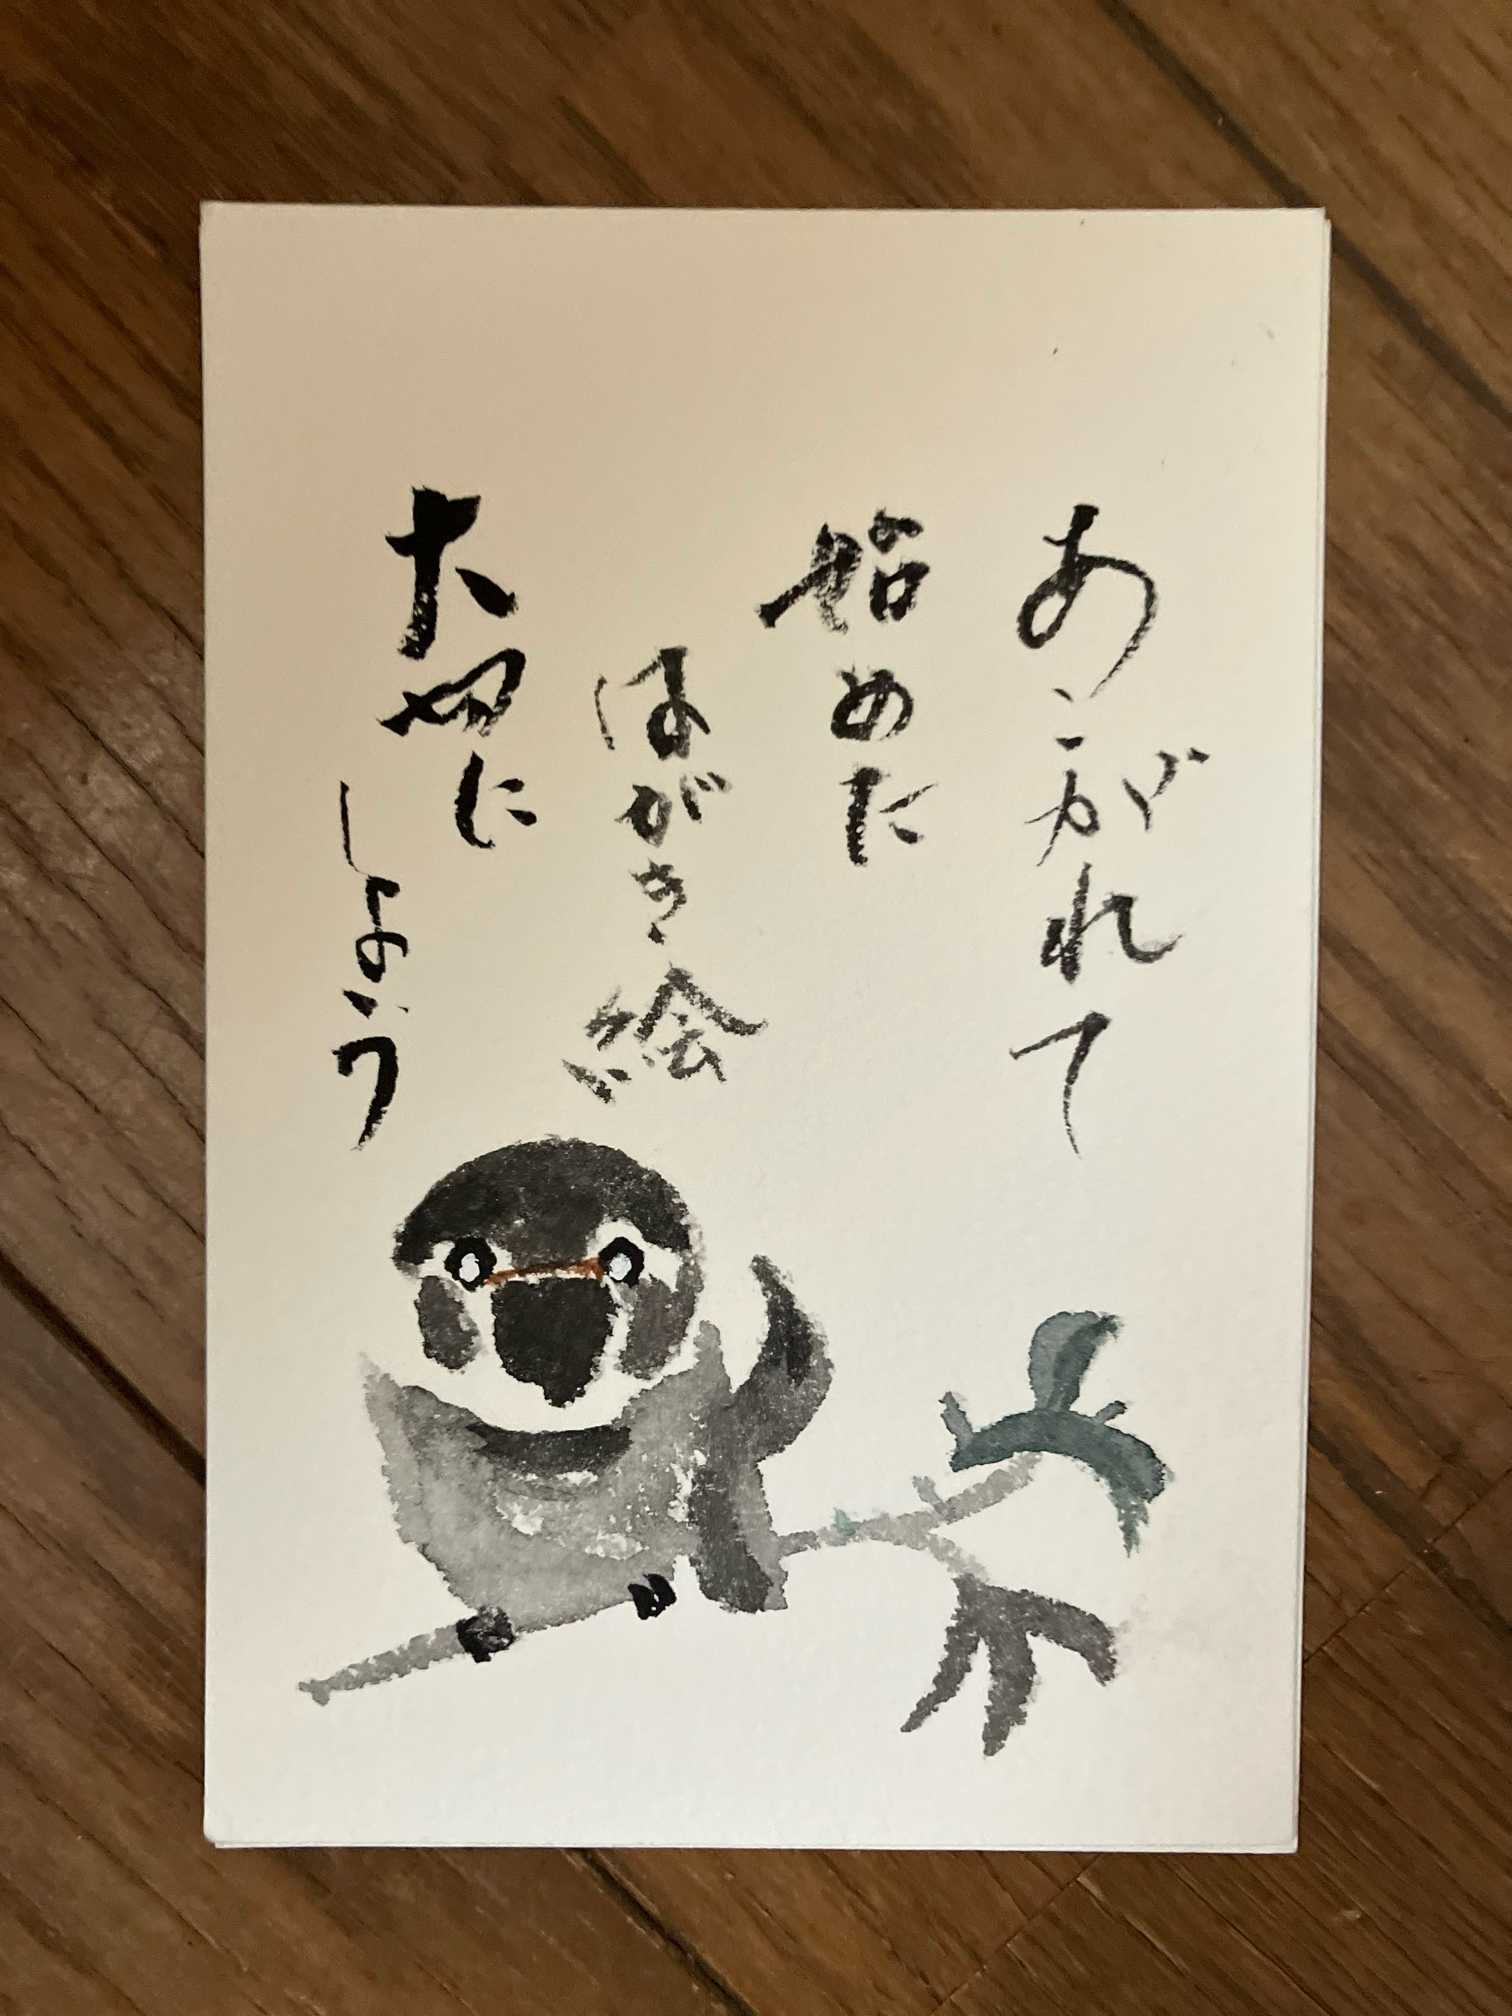 あこがれて
始めた
はがき絵
大切に
しよう